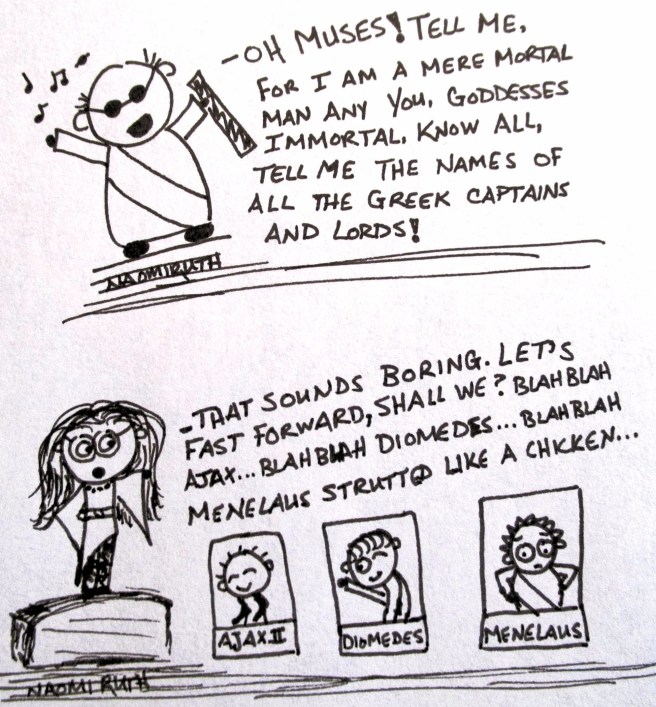 -OH MUSES! TELL ME,
FOR I AM A MERE MORTAL
MAN ANY YOU, GODDESSES
IMMORTAL, KNOW ALL,
TELL ME THE NAMES OF
ALL THE GREEK CAPTAINS
AND LORDS!
NAOMIRUTH
-THAT SOUNDS BORING. LET'S
FAST FORWARD, SHALL WE? BLAH BLAH
AJAX...BLAH BLAH DIOMEDES...BLAH BLAH
MENELAUS STRUTTD LIKE A CHICKEN...
AJAX II
DIOMEDES
MENELAUS
NAOMI RUTH